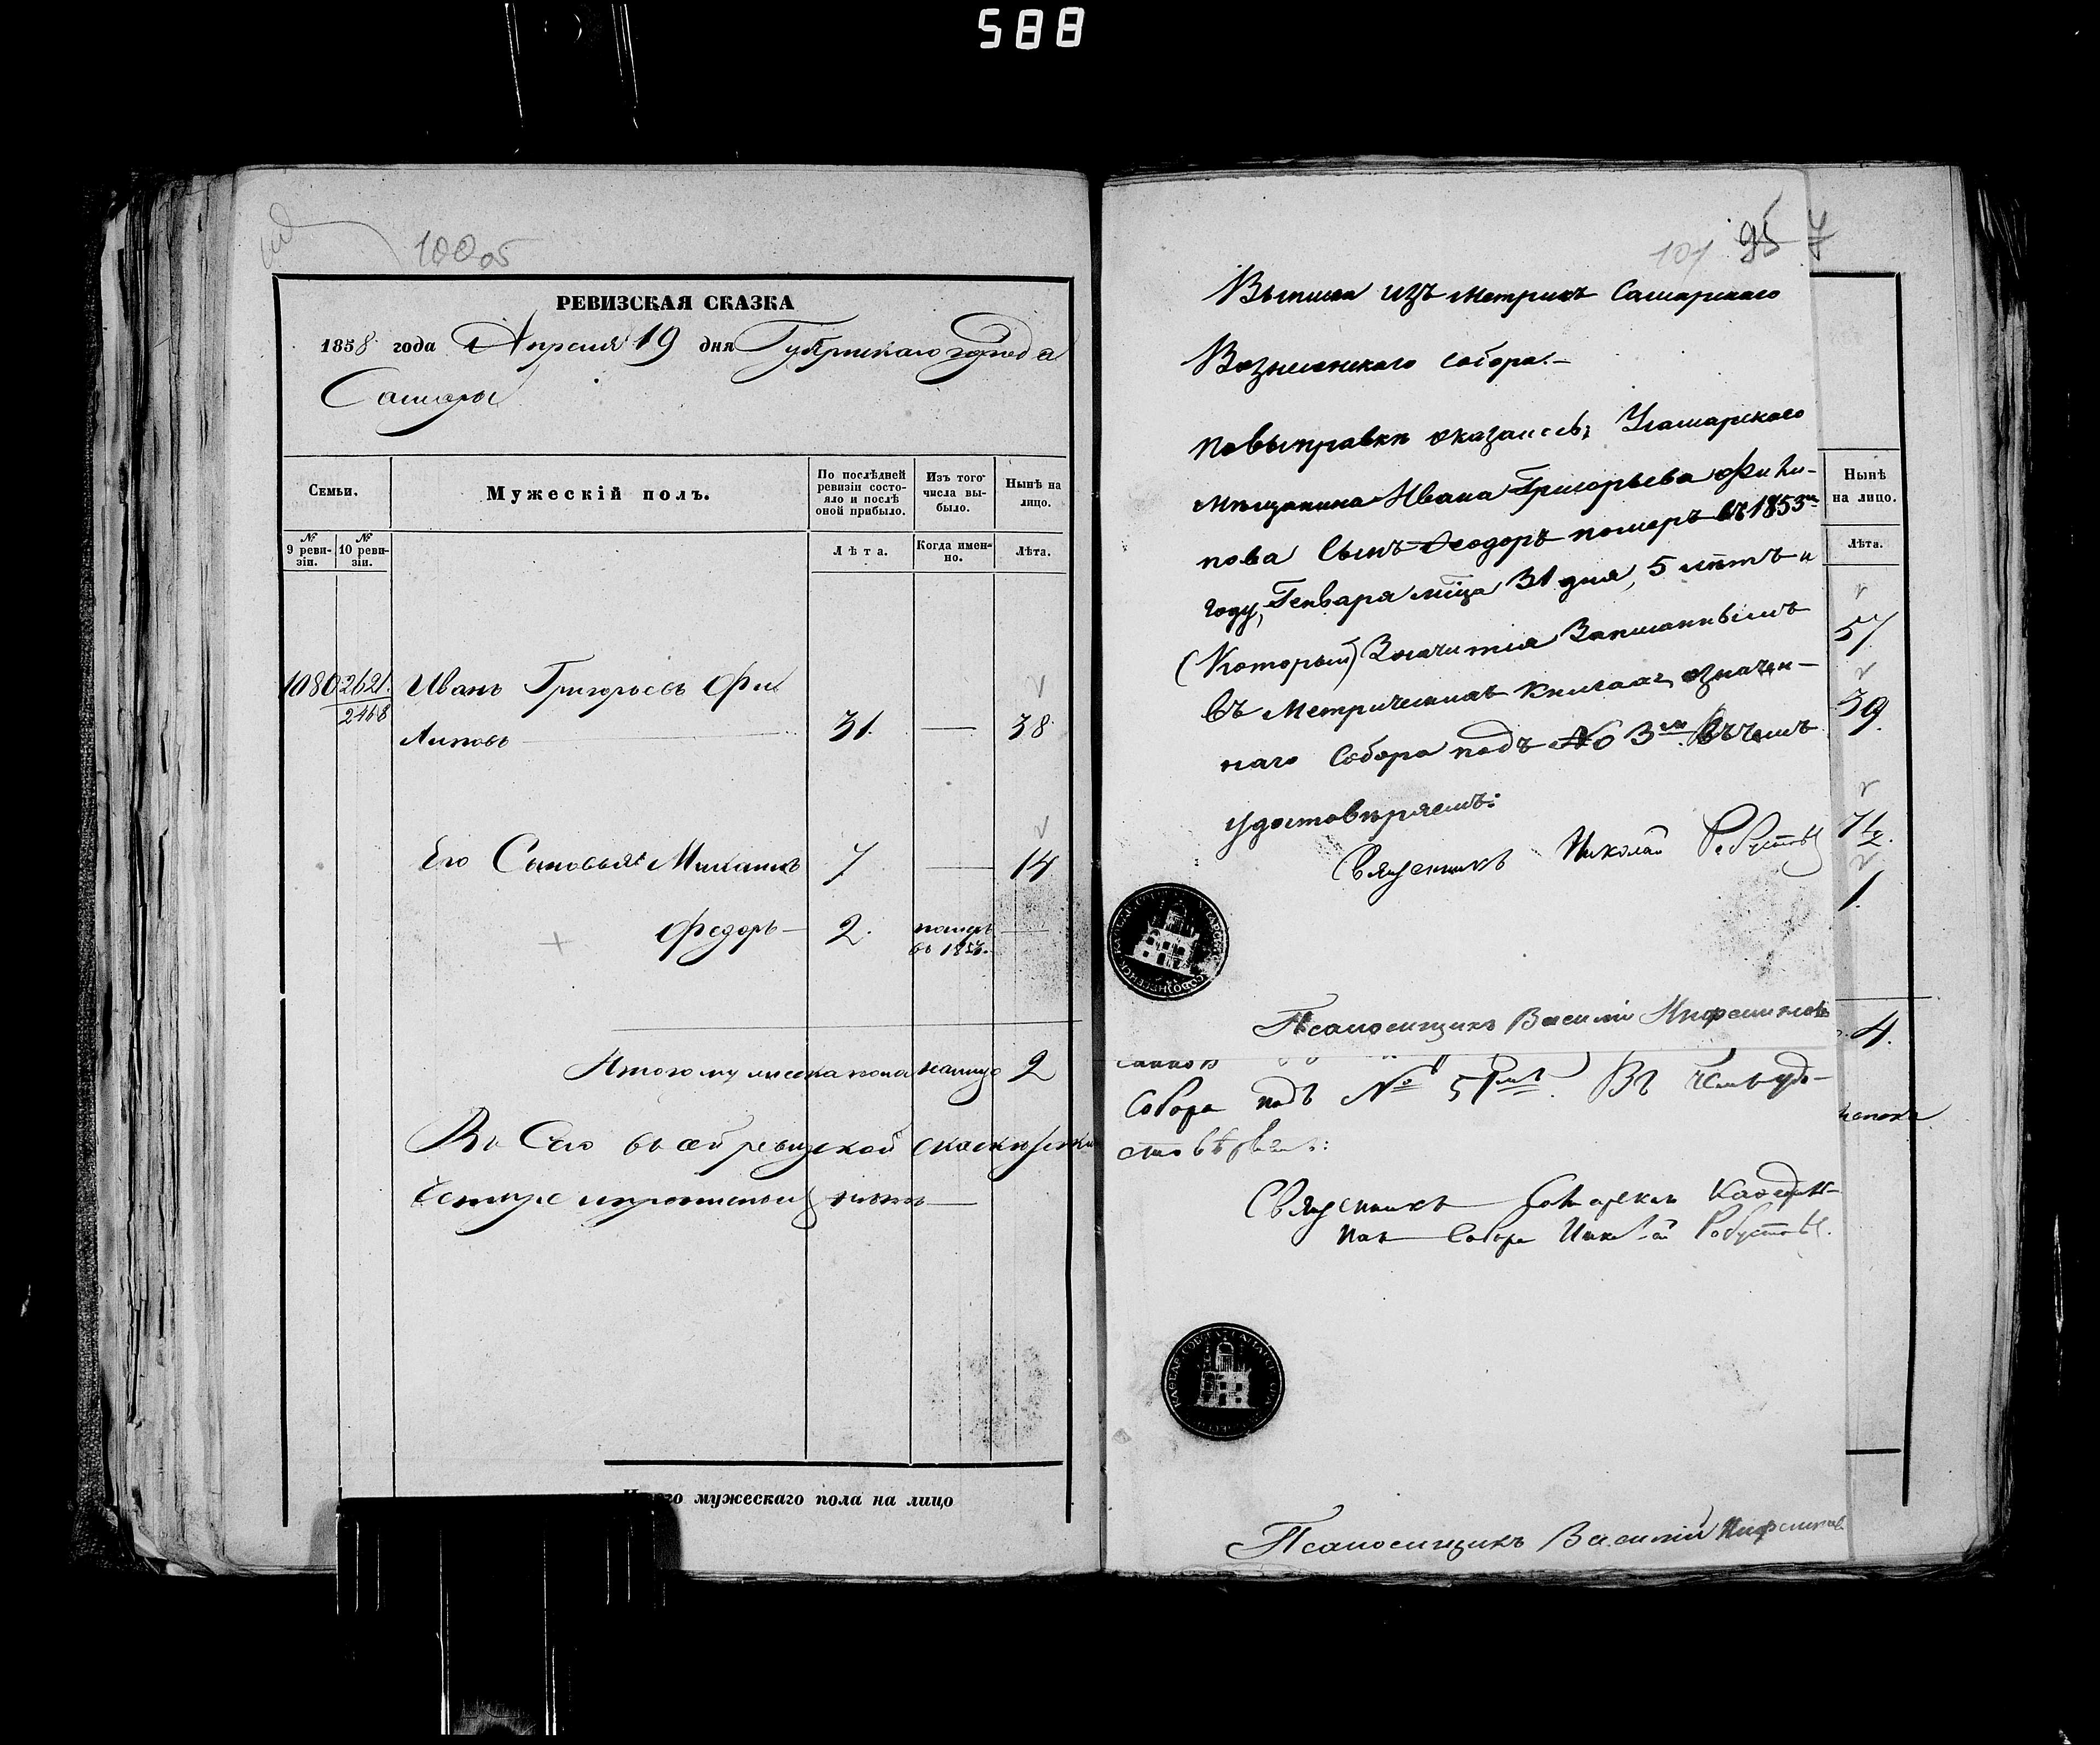 588
100 05
РЕВИЗСКАЯ СКАЗКА
1858 года Апреля 19 дня Губернскаго города
Самары
Семьи.
Мужескій полъ.
По послѣдней ревизіи состо-
яло и послѣ оной прибыло.
Изъ того числа вы-
было.
Нынѣ на лицо.
№ 9 реви-
зіи.
№ 10 реви-
зіи.
Лѣта.
Когда имен-
но.
Лѣта.
1080 2621. Иванъ Григорьевъ Фи
2468
липовъ 31. — 38
Его Сыновья: Михаилъ 7 — 14
Федоръ — 2. померъ въ 1853. —
Итого мужеска пола налицо 2
Въ Сей ревизской
четыре
го мужескаго пола на лицо
101 95 7
Выписка изъ Метрикъ Самарскаго
Вознесенскаго собора.—
По выправкѣ оказалось, Усамарскаго
мѣщанина Ивана Григорьева Фили-
пова Сынъ Ѳеодоръ померъ въ 1853м
году, Генваря мца 31 дня, 5 лѣтъ и
(Который) Значится Записаннымъ
въ Метрическихъ книгахъ, означен-
наго Собора подъ № 3м Въ чемъ
удостовѣряемъ:
Священникъ Николай Робустовъ
Псаломщикъ Василій
Собора подъ № 5 Въ чемъ удо-
стовѣряемъ:
Священникъ Самарскаго Каѳедраль-
наго Собора Николай Робустовъ.
Псаломщикъ Василій
Нынѣ
на лицо.
Лѣта.
57
39.
7½.
1.
4.